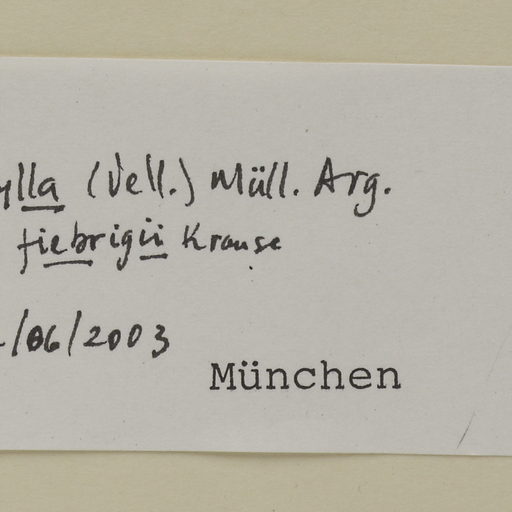 ylla (Vell.) Müll. Arg.
fiebrigii Krause
/06/2003
München